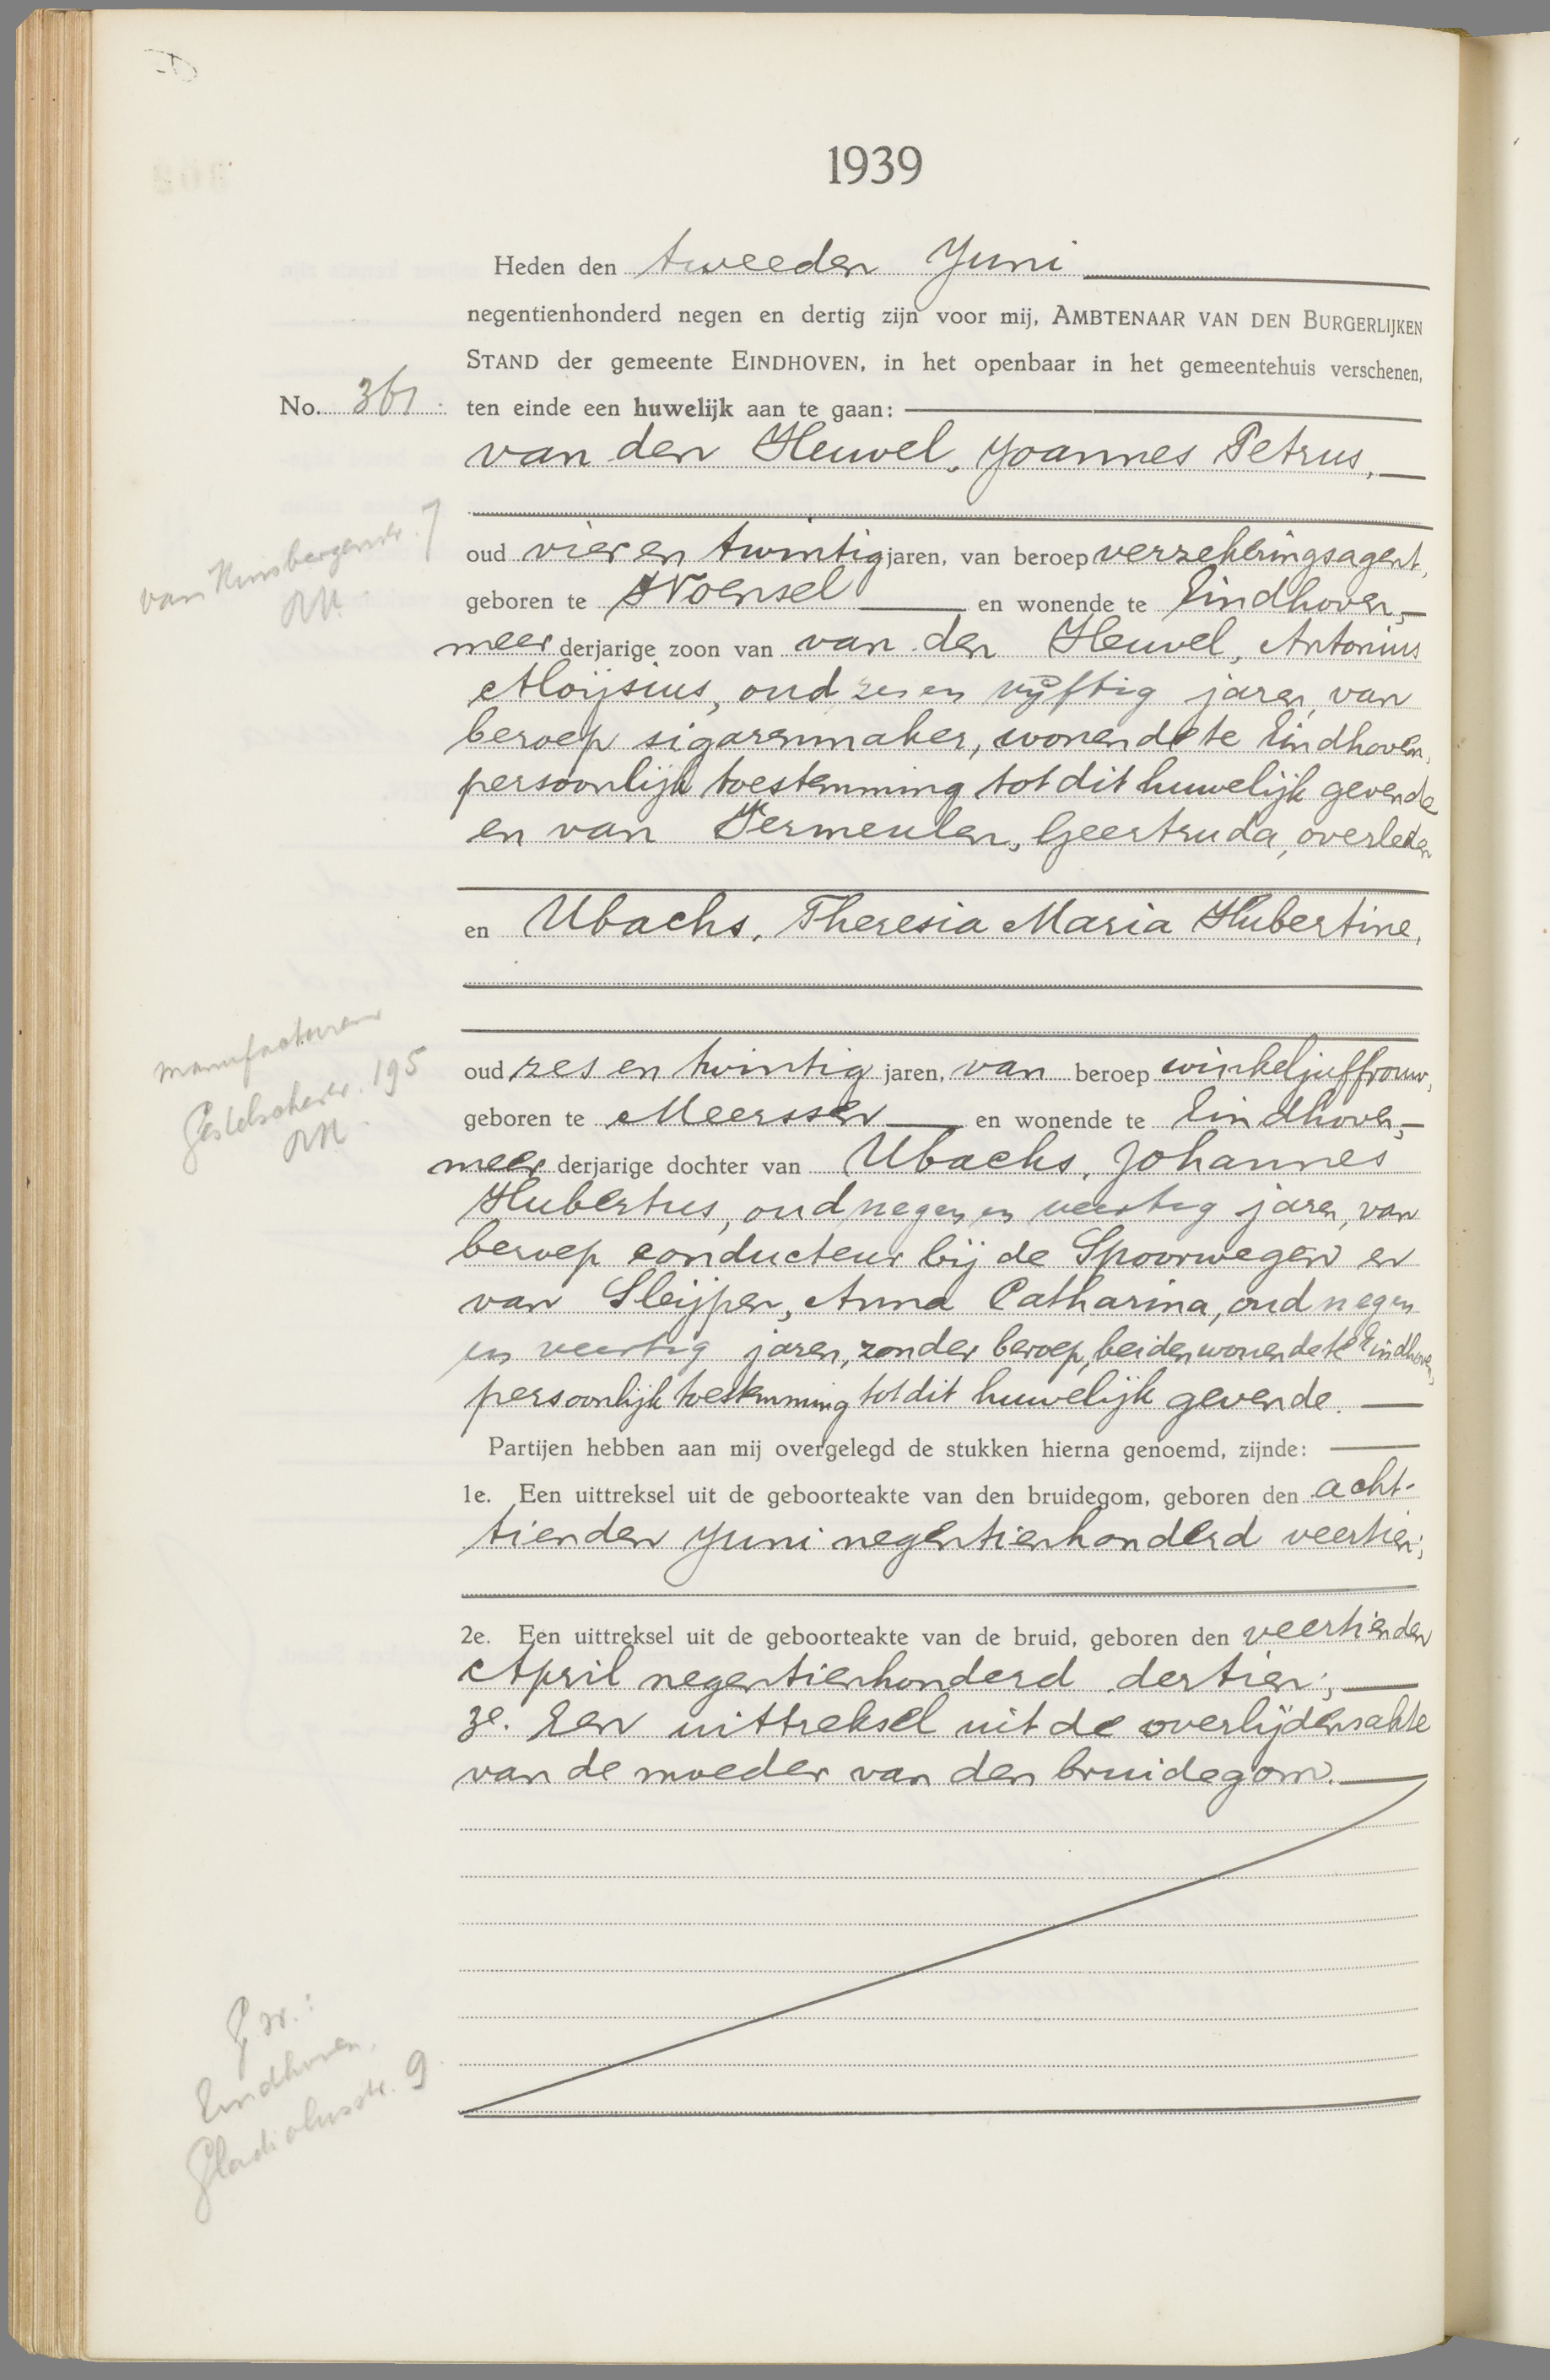 1939
Heden den tweeden Juni
negentienhonderd negen en dertig zijn voor mij, AMBTENAAR VAN DEN BURGERLIJKEN
STAND der gemeente EINDHOVEN, in het openbaar in het gemeentehuis verschenen,
No. 361. ten einde een huwelijk aan te gaan:
van den Heuvel, Joannes Petrus,
van Kinsbergenstr. 7
R.K.
oud vier en twintig jaren, van beroep verzekeringsagent,
geboren te Woensel en wonende te Eindhoven,
meerderjarige zoon van van den Heuvel, Antonius
Aloijsius, oud zes en vijftig jaren, van
beroep sigarenmaker, wonende te Eindhoven,
persoonlijk toestemming tot dit huwelijk gevende
en van Vermeulen, Geertruda, overleden
en Ubachs, Theresia Maria Hubertine,
manufacturen
Gestelschestr. 195
R.K.
oud zes en twintig jaren, van beroep winkeljuffrouw,
geboren te Meerssen en wonende te Eindhoven,
meerderjarige dochter van Ubachs, Johannes
Hubertus, oud negen en veertig jaren, van
beroep conducteur bij de Spoorwegen en
van Sleijpen, Anna Catharina, oud negen
en veertig jaren, zonder beroep, beiden wonende te Eindhoven,
persoonlijk toestemming tot dit huwelijk gevende.
Partijen hebben aan mij overgelegd de stukken hierna genoemd, zijnde:
1e. Een uittreksel uit de geboorteakte van den bruidegom, geboren den acht-
tienden Juni negentienhonderd veertien;
2e. Een uittreksel uit de geboorteakte van de bruid, geboren den veertienden
April negentienhonderd dertien;
3e. Een uittreksel uit de overlijdensakte
van de moeder van den bruidegom.
Eindhoven,
Gladiolusstr. 9